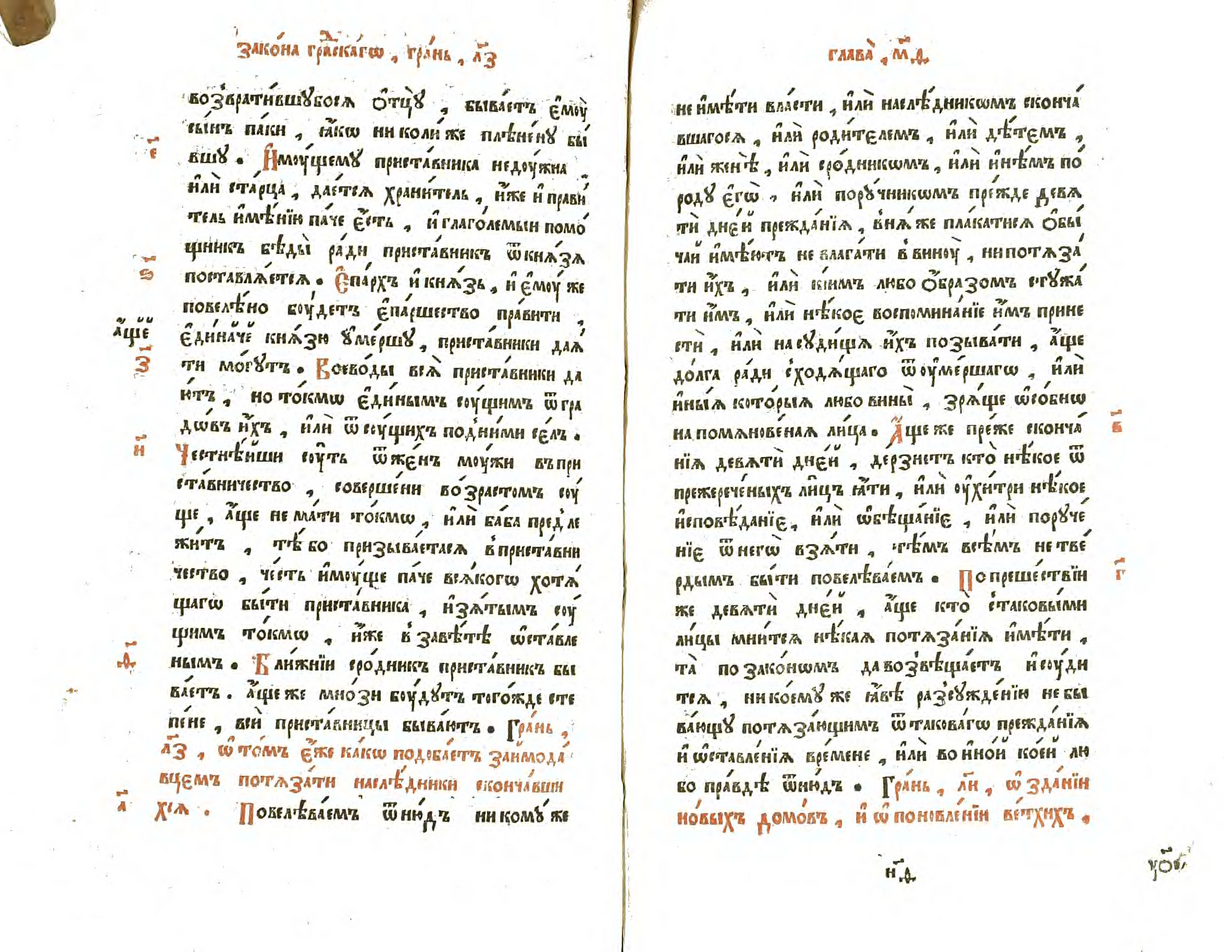 зако́на гра́дскагѡ , гра́нь , л҃з
возврати́вшꙋбосѧ ѻ҆тцꙋ̀ , быва́етъ є҆моу̀
сы́нъ па́ки , ꙗ҆́кѡ ни коли́ же плѣне́нꙋ бы́
є҃
вшꙋ . И҆моу́щемꙋ приста́вника недоу́жна
и҆лѝ ста́рца , дае́тсѧ храни́тель , и҆́же и҆ прави́
тель и҆мѣ́нїи па́че є҆́сть , и҆ глаго́лемыи помо́
щникъ бѣды̀ ра́ди приста́вникъ ѿ кнѧ́зѧ
ѕ҃
поставлѧ́етсѧ . Є҆па́рхъ и҆ кнѧ́зь , и҆ є҆моу́ же
повелѣ́но боу́детъ є҆па́ршество пра́вити ,
а҆́ще
є҆дина́че кнѧ́зю ᲂу҆ме́ршꙋ , приста́вники даѧ́
з҃
ти мо́гꙋтъ . Воево́ды всѧ̀ приста́вники да
ю́тъ , но то́кмѡ є҆ди́нымъ соу́щимъ ѿ гра
дѡ́въ и҆́хъ , и҆лѝ ѿ соу́щихъ под̾ ни́ми се́лъ .
и҃
Честнѣ́йши соу́ть ѿ же́нъ моу́жи въ при
ста́вничество , соверше́ни во́зрастомъ соу́
ще , а҆́ще не ма́ти то́кмѡ , и҆лѝ ба́ба предле
жи́тъ , тѣ́ бо призыва́етасѧ в̾ приста́вни
чество , че́сть и҆моу́ще па́че всѧ́когѡ хотѧ́
щагѡ бы́ти приста́вника , и҆з̾ѧ́тымъ соу́
щимъ то́кмѡ , и҆́же в̾ завѣ́тѣ ѡ҆ста́вле
ф҃
нымъ . Бли́жнїи сро́дникъ приста́вникъ бы
ва́етъ . а҆́ще же мно́зи боу́дꙋтъ того́жде сте
пе́не , всѝ приста́вницы быва́ютъ . Гра́нь ,
л҃з , ѡ҆ то́мъ є҆́же ка́кѡ подоба́етъ займода́
вцемъ потѧза́ти наслѣ́дники сконча́вши
а҃
хсѧ . Повелѣва́емъ ѿню́дъ ни комꙋ́ же
глава̀ , м҃д
не и҆мѣ́ти вла́сти , и҆лѝ наслѣ́дникѡмъ сконча́
вшагосѧ , и҆лѝ роди́телемъ , и҆лѝ дѣ́темъ ,
и҆лѝ женѣ̀ , и҆лѝ сро́дникѡмъ , и҆лѝ и҆нѣ́мъ по
родꙋ є҆гѡ̀ , и҆лѝ порꙋ́чникѡмъ пре́жде девѧ
тѝ дне́й прежда́нїѧ , в̾ нѧ́же пла́катисѧ ѻ҆бы́
чай и҆мѣ́ютъ не влага́ти в̾ виноу̀ , ни потѧза́
ти и҆́хъ , и҆лѝ кі́имъ лю́бо ѻ҆́бразомъ стꙋжа́
ти и҆̀мъ , и҆лѝ нѣ́кое воспомина́нїе и҆̀мъ прине
стѝ , и҆лѝ на сꙋди́щѧ и҆́хъ позыва́ти , а҆́ще
до́лга ра́ди сходѧ́щаго ѿ оу҆ме́ршагѡ , и҆лѝ
и҆ны́ѧ кото́рыѧ лю́бо вины̀ , зрѧ́ще ѡ҆со́бнѡ
в҃
на помѧнове́наѧ ли́ца . А҆́ще же пре́же сконча́
нїѧ девѧтѝ дне́й , де́рзнетъ кто̀ нѣ́кое ѿ
прежерече́ныхъ ли́цъ ꙗ҆́ти , и҆лѝ оу҆хитри́ нѣ́кое
и҆сповѣ́данїе , и҆лѝ ѡ҆бѣща́нїе , и҆лѝ порꙋче́
нїе ѿ негѡ̀ взѧ́ти , тѣ́мъ всѣ́мъ не тве́
г҃
рдымъ бы́ти повелѣва́емъ . По преше́ствїи
же девѧтѝ дне́й , а҆́ще кто̀ с̾таковы́ми
ли́цы мни́тсѧ нѣ́каѧ потѧза́нїѧ и҆мѣ́ти ,
та̀ по зако́нѡмъ да возвѣща́етъ и҆ соу́ди
тсѧ , ни коемꙋ́ же ꙗ҆́вѣ раз̾сꙋжде́нїю не бы
ва́ющꙋ потѧза́ющимъ ѿ такова́гѡ прежда́нїѧ
и҆ ѡ҆ставле́нїѧ вре́мене , и҆лѝ во и҆но́й ко́ей лю́
бо пра́вдѣ ѿню́дъ . Гра́нь , л҃и , ѡ҆ зда́нїи
но́выхъ домо́въ , и҆ ѡ҆ поновле́нїи ве́тхихъ .
н҃д